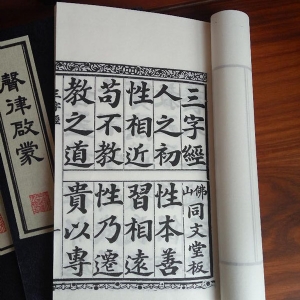 三字經
佛山同文堂板
人之初
性本善
性相近
習相遠
苟不教
性乃遷
教之道
貴以專
三字經
聲律啟蒙